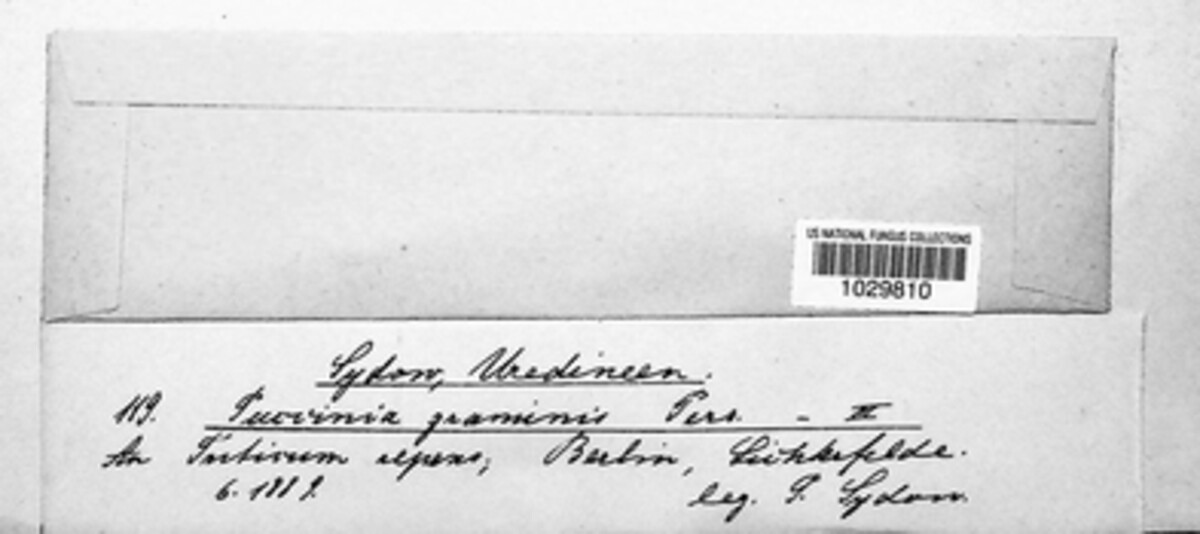 US NATIONAL FUNGUS COLLECTIONS
1029810
Sydow, Uredineen.
119. Puccinia graminis Pers. - II
An Triticum repens, Berlin, Lichterfelde.
6. 1889.
leg. P. Sydow.